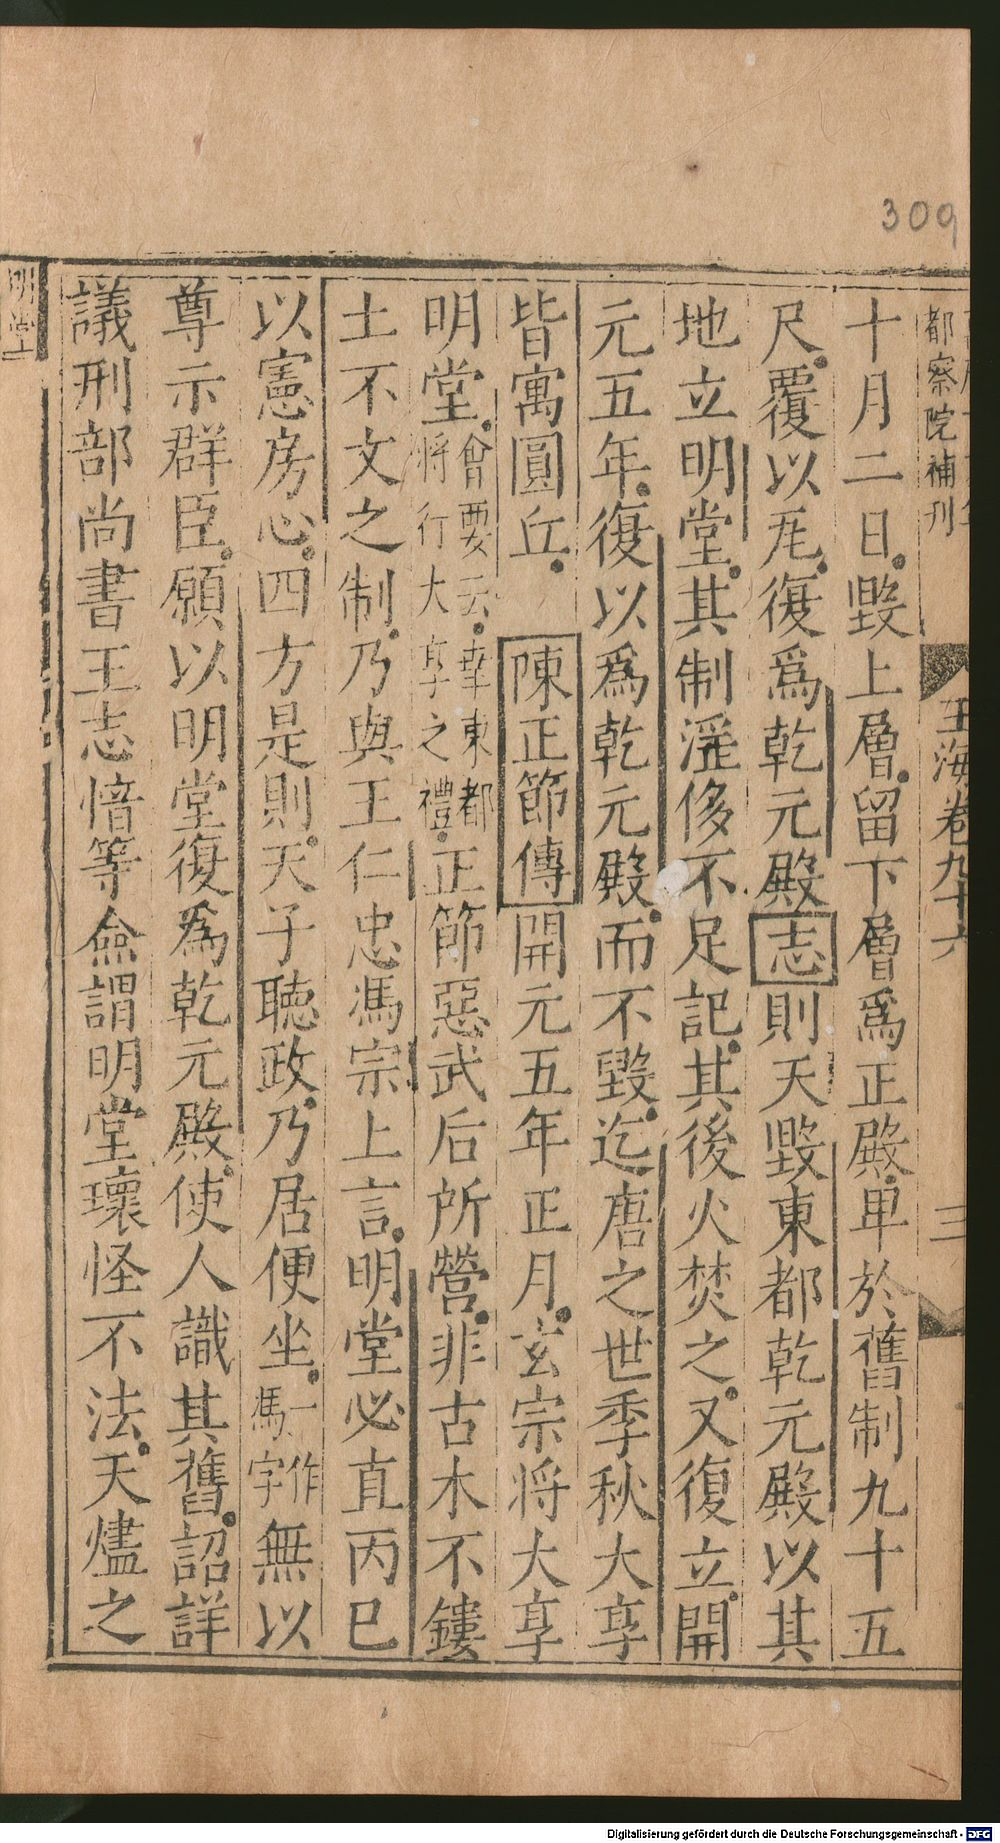 309
都察院補刊
玉海卷九十六
三
十月二日。毀上層。留下層爲正殿。卑於舊制九十五
尺。覆以瓦。復爲乾元殿志則天毀東都乾元殿以其
地立明堂。其制淫侈不足記。其後火焚之。又復立。開
元五年。復以爲乾元殿。而不毀。迄唐之世季秋大享
皆寓圓丘。陳正節傳開元五年正月。玄宗將大享
明堂。會要云。幸東都將行大享之禮。正節惡武后所營。非古木不鏤
土不文之制。乃與王仁忠馮宗上言。明堂必直丙巳
以憲房心。四方是則。天子聽政。乃居便坐。一作馮字無以
尊示群臣。願以明堂復爲乾元殿。使人識其舊。詔詳
議刑部尚書王志愔等僉謂明堂瓌怪不法。天燼之
明堂
Digitalisierung gefördert durch die Deutsche Forschungsgemeinschaft - DFG